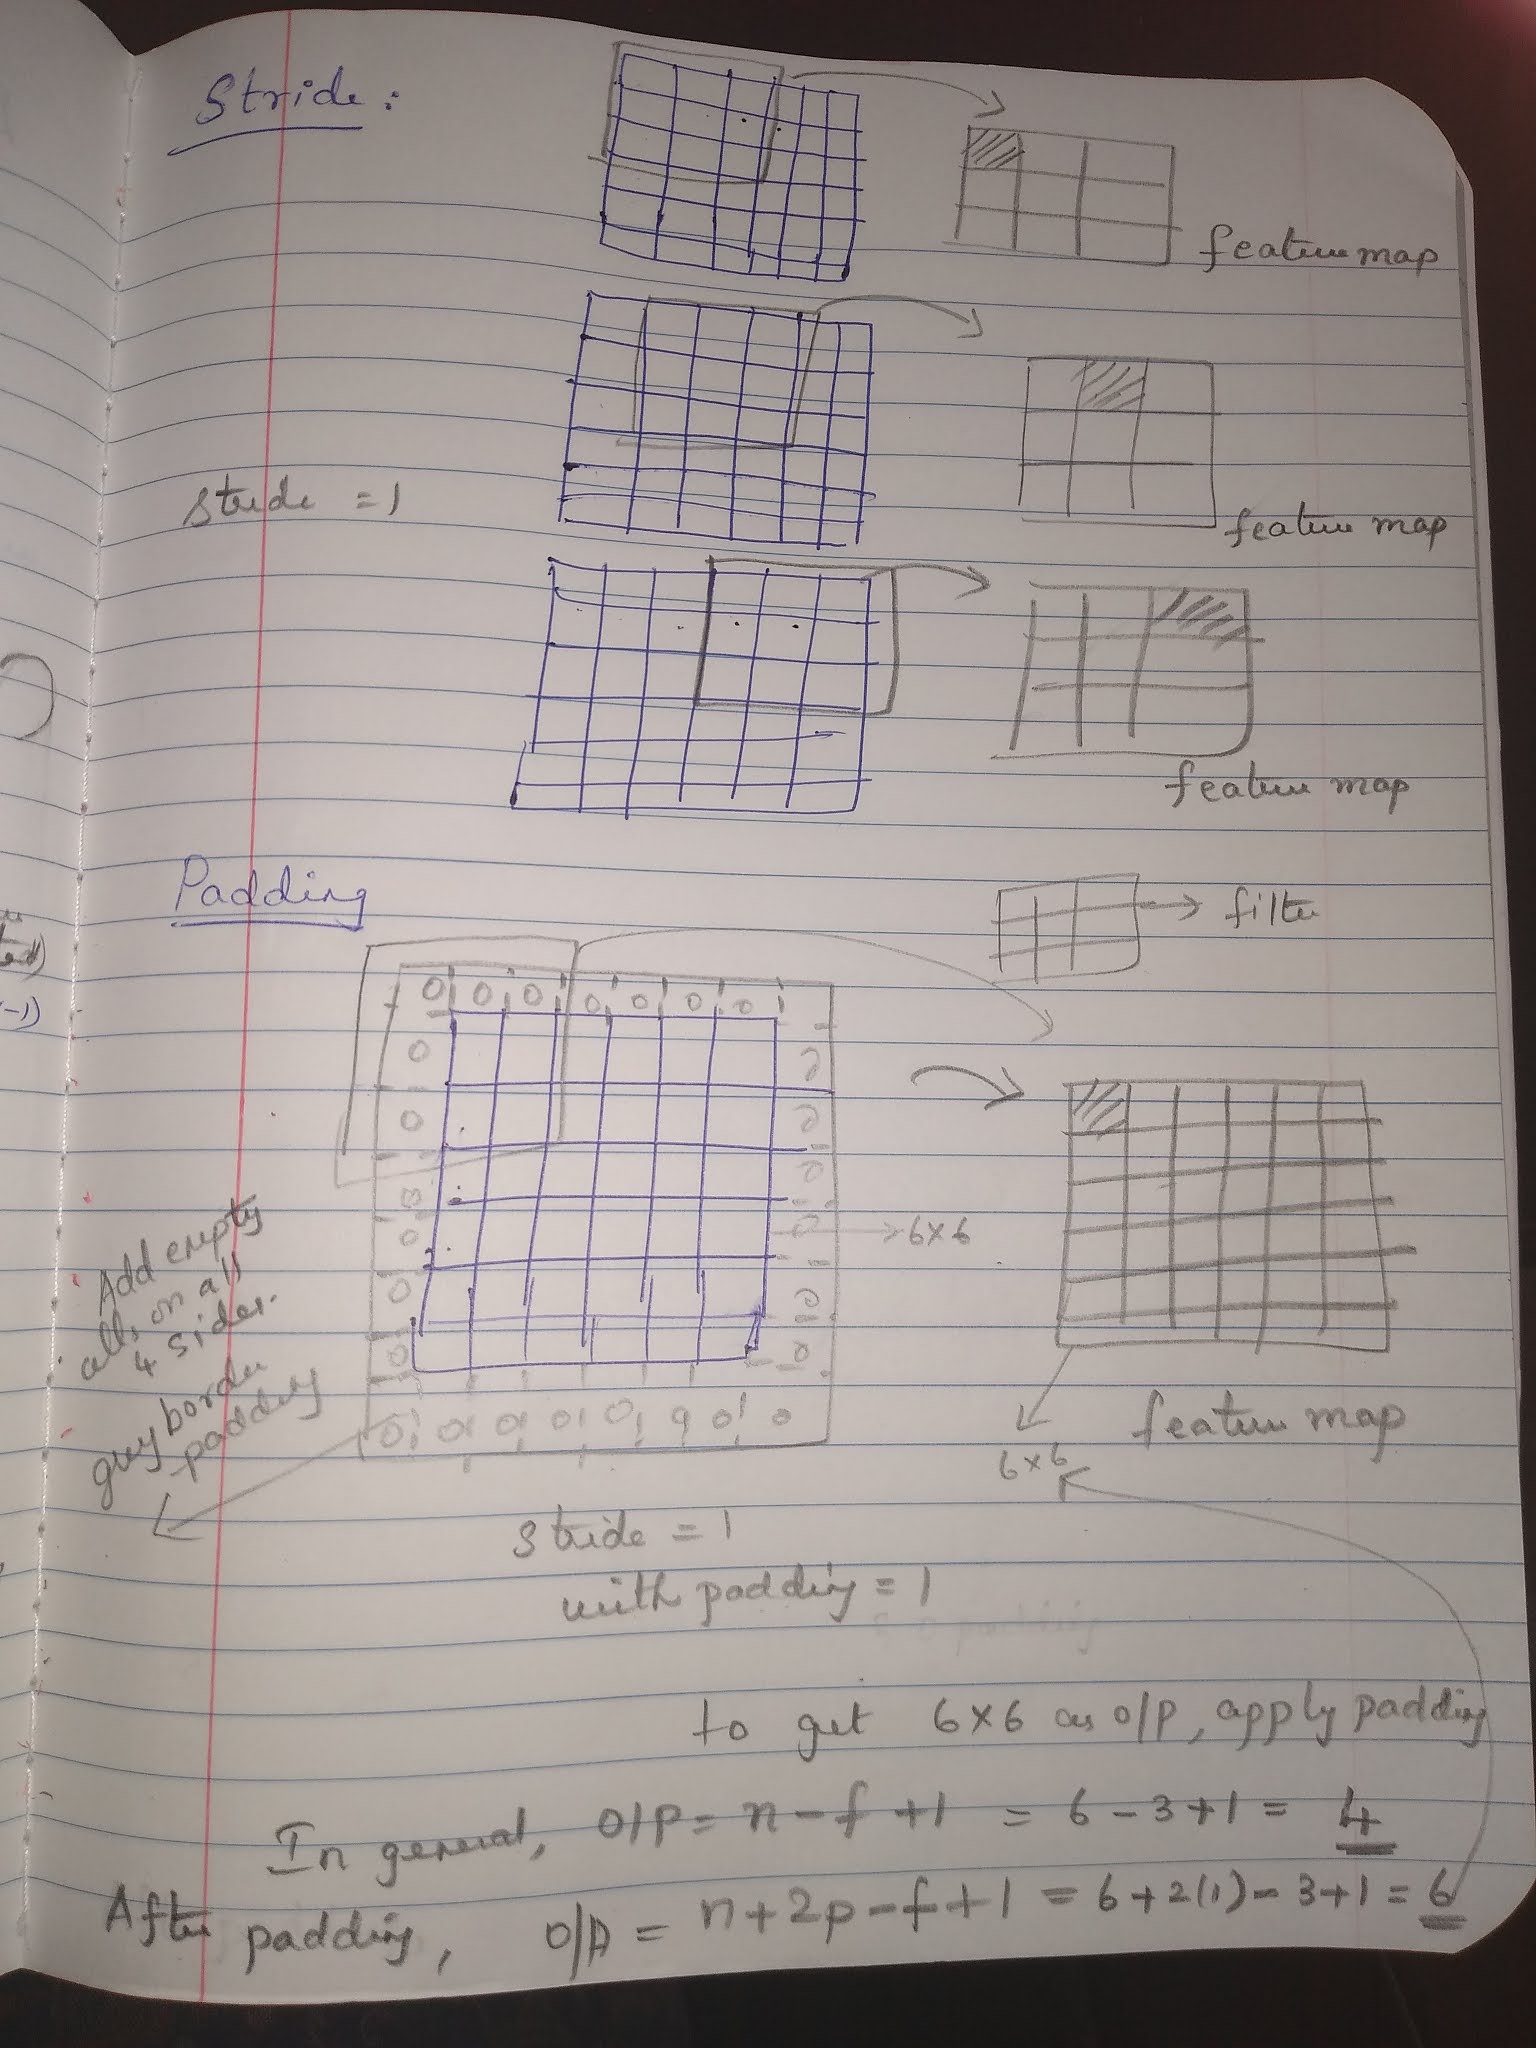 Stride :
feature map
Stride = 1
feature map
feature map
Padding
filter
0 0 0 0 0 0 0
0
0
0
0
0
0
0
0
0
0
0
0 0 0 0 0 9 0 0
6×6
Add empty
cells on all
4 sides.
grey border
padding
feature map
6×6
Stride = 1
with padding = 1
to get 6×6 as O/P, apply padding
In general, O/P = n - f + 1 = 6 - 3 + 1 = 4
After padding, O/P = n + 2p - f + 1 = 6 + 2(1) - 3 + 1 = 6